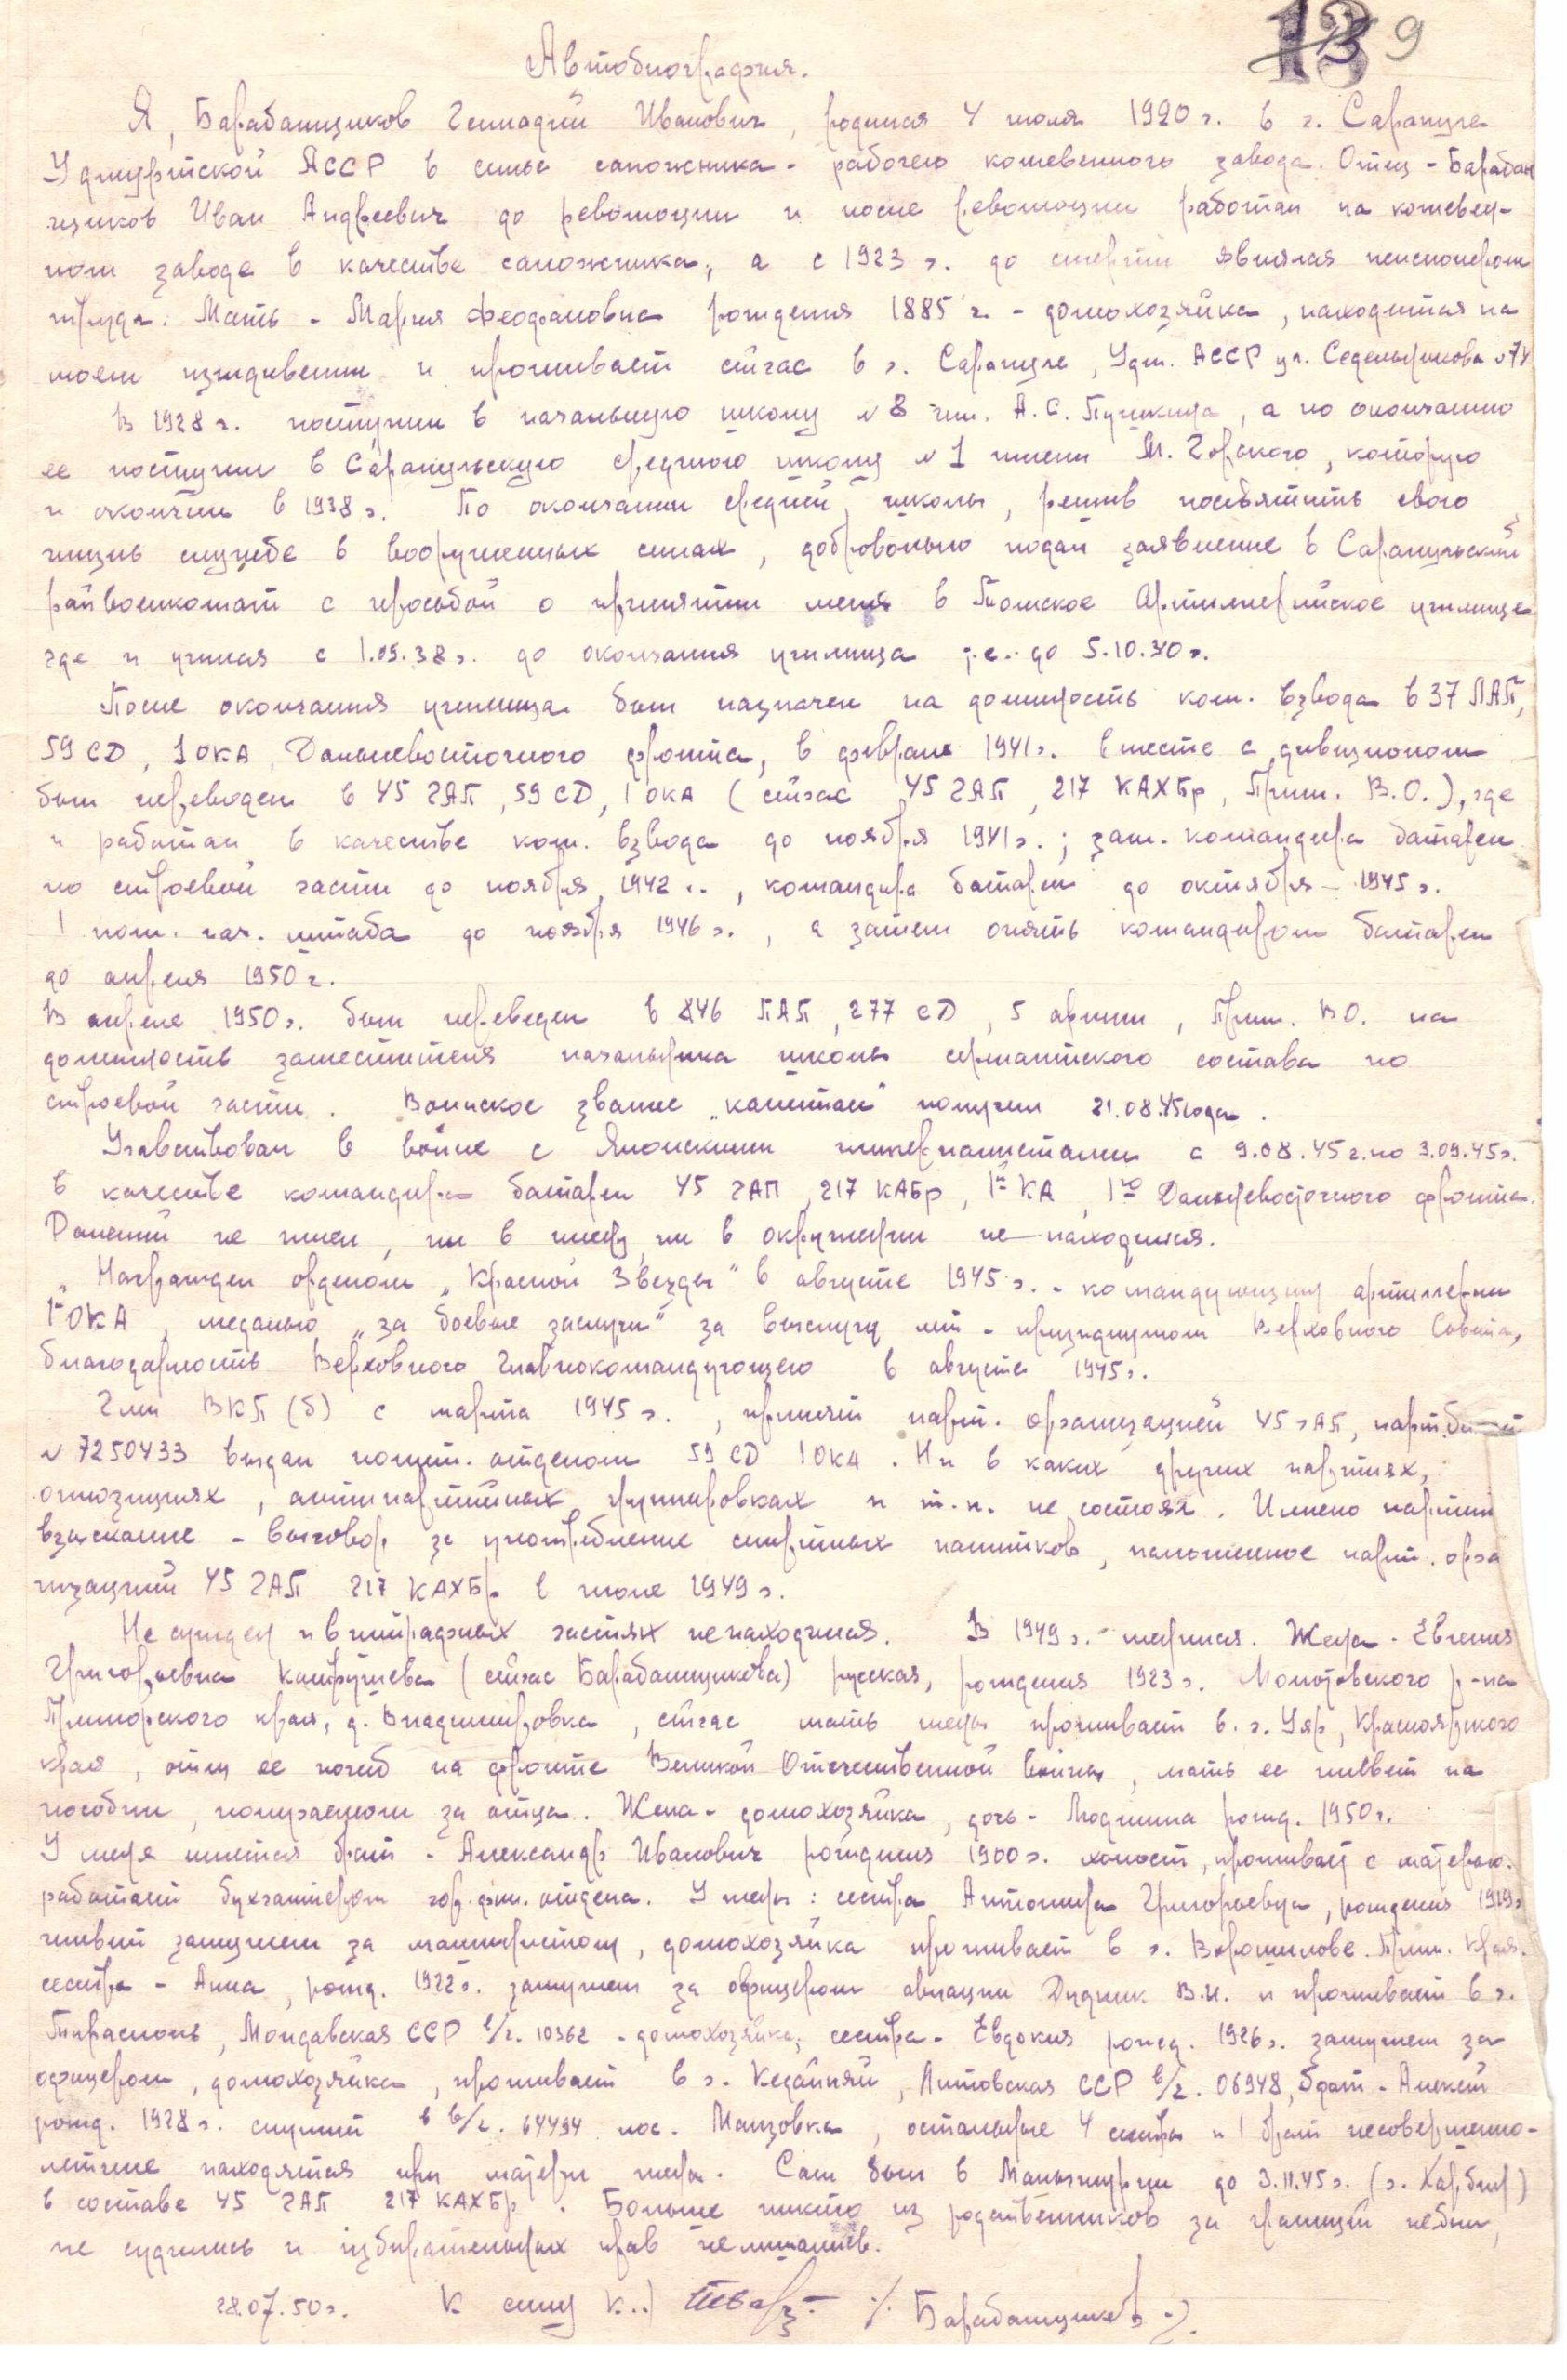 13 9
Автобиография.
Я, Барабанщиков Геннадий Иванович, родился 4 июля 1920 г. в г. Сарапуле
Удмуртской АССР в семье сапожника - рабочего кожевенного завода. Отец - Барабан
щиков Иван Андреевич до революции и после революции работал на кожевен-
ном заводе в качестве сапожника, а с 1923 г. до смерти являлся пенсионером
труда. Мать - Мария Феофановна рождения 1885 г. - домохозяйка, находится на
моем иждивении и проживает сейчас в г. Сарапуле, Удм. АССР ул. Седельникова №74
В 1928 г. поступил в начальную школу №8 им. А.С. Пушкина, а по окончанию
ее поступил в Сарапульскую среднюю школу №1 имени М. Горького, которую
и окончил в 1938 г. По окончании средней школы, решив посвятить свою
жизнь службе в вооруженных силах, добровольно подал заявление в Сарапульский
райвоенкомат с просьбой о принятии меня в Томское Артиллерийское училище
где и учился с 1.09.38 г. до окончания училища т.е. до 5.10.40 г.
После окончания училища был назначен на должность ком. взвода в 37 ЛАП,
59 СД, 1 ОКА, Дальневосточного фронта, в феврале 1941 г. вместе с дивизионом
был переведен в 45 ГАП, 59 СД, 1 ОКА (сейчас 45 ГАП, 217 КАХБр, Прим. В.О.), где
и работал в качестве ком. взвода до ноября 1941 г.; зам. командира батареи
по строевой части до ноября 1942 г., командира батареи до октября - 1945 г.
1 пом. нач. штаба до ноября 1946 г., а затем опять командиром батареи
до апреля 1950 г.
В апреле 1950 г. был переведен в 846 ПАП, 277 СД, 5 армии, Прим. ВО. на
должность заместителя начальника школы сержантского состава по
строевой части. Воинское звание „капитан" получил 21.08.45 года.
Участвовал в войне с Японскими империалистами с 9.08.45 г. по 3.09.45 г.
в качестве командира батареи 45 ГАП, 217 КАБр, 1й КА, 1го Дальневосточного фронта.
Ранений не имел, ни в плену ни в окружении не находился.
Награжден орденом „Красной Звезды" в августе 1945 г. - командующим артиллерии
1й ОКА, медалью „за боевые заслуги" за выслугу лет - президиумом Верховного Совета,
благодарность Верховного Главнокомандующего в августе 1945 г.
Член ВКП(б) с марта 1945 г., принят парт. организацией 45 ГАП, парт.билет
№ 7250433 выдан полит. отделом 59 СД 1 ОКА. Ни в каких других партиях,
оппозициях, антипартийных группировках и т.п. не состоял. Имею партий
взыскание - выговор за употребление спиртных напитков, наложенное парт. орга
низацией 45 ГАП 217 КАХБр в июле 1949 г.
Не судим и в штрафных частях не находился. В 1949 г. женился. Жена - Евгения
Григорьевна (сейчас Барабанщикова) русская, рождения 1923 г. Молотовского р-на
Приморского края, д. Владимировка, сейчас мать жены проживает в г. Уяр, Красноярского
края, отец ее погиб на фронте Великой Отечественной войны, мать ее живет на
пособии, получаемом за отца. Жена - домохозяйка, дочь - Людмила рожд. 1950 г.
У меня имеется брат - Александр Иванович рождения 1900 г. холост, проживает с матерью.
работает бухгалтером гор.фин. отдела. У жены: сестра Антонина Григорьевна, рождения 1919 г
живет замужем за машинистом, домохозяйка проживает в г. Ворошилове Прим. края.
сестра - Анна, рожд. 1922 г. замужем за офицером авиации Дудник В.И. и проживает в г.
Тирасполь, Молдавская ССР в/ч. 10362 - домохозяйка; сестра - Евдокия рожд. 1926 г. замужем за
офицером, домохозяйка, проживает в г. Кедайняй, Литовская ССР в/ч. 06948, брат - Алексей
рожд. 1928 г. служит в в/ч. 64494 пос. Манзовка, остальные 4 сестры и 1 брат несовершенно-
летние находятся при матери жены. Сам был в Маньчжурии до 3.11.45 г. (г. Харбин)
в составе 45 ГАП 217 КАХБр. Больше никто из родственников за границей не был,
не судились и избирательных прав не лишались.
28.07.50 г. К сему /Барабанщиков/.